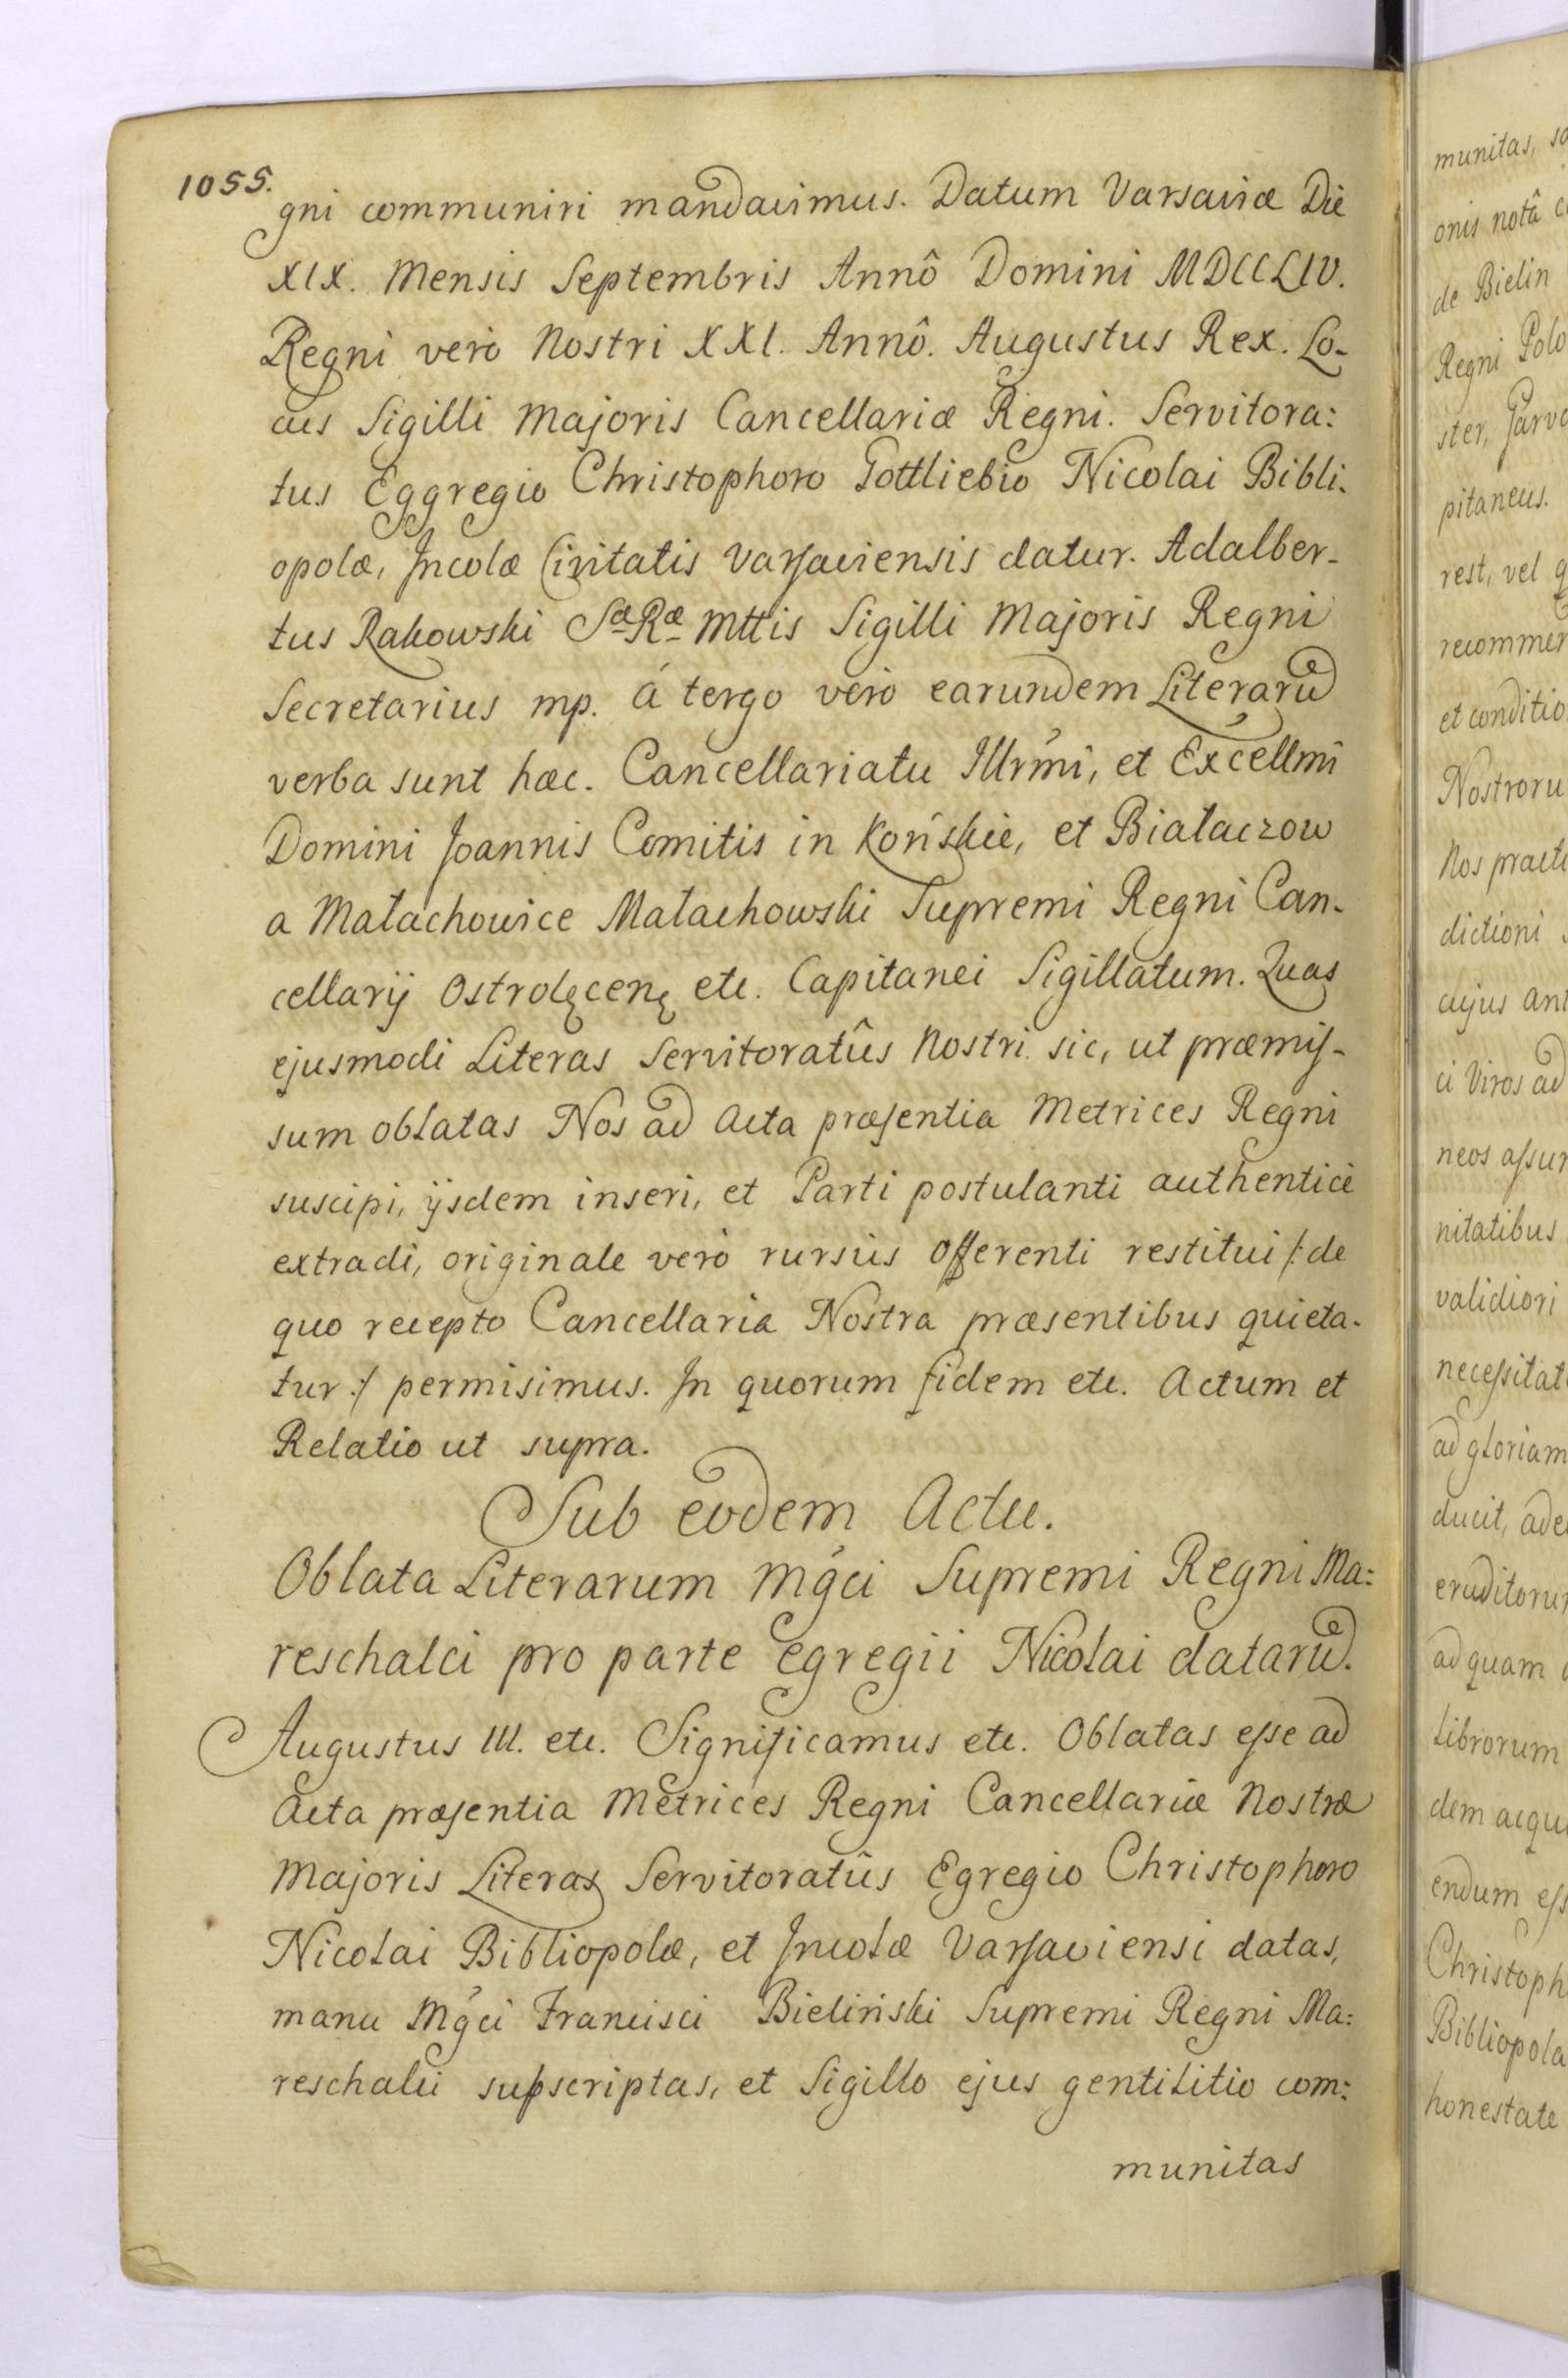 1055.
gni communiri mandavimus. Datum Varsaviæ Die
XIX. Mensis Septembris Annô Domini MDCCLIV.
Regni verò Nostri XXI. Annô. Augustus Rex. Lo-
cus Sigilli Majoris Cancellariæ Regni. Servitora:
tus Eggregio Christophoro Gottliebio Nicolai Bibli-
opolæ, Incolæ Civitatis Varsaviensis datur. Adalber-
tus Rakowski Sæ Ræ Mttis Sigilli Majoris Regni
Secretarius mp. á tergo verò earundem Literarū
verba sunt hæc. Cancellariatu Illrmi, et Excellmi
Domini Joannis Comitis in Końskie, et Białaczow
a Małachowice Małachowski Supremi Regni Can-
cellarij Ostrolęcenę etc. Capitanei Sigillatum. Quas
ejusmodi Literas Servitoratûs Nostri sic, ut præmis-
sum oblatas Nos ad Acta præsentia Metrices Regni
suscipi, ijsdem inseri, et Parti postulanti authenticè
extradi, originale verò rursùs Offerenti restitui /: de
quo recepto Cancellaria Nostra præsentibus quieta-
tur :/ permisimus. In quorum fidem etc. Actum et
Relatio ut supra.
Sub eodem Actu.
Oblata Literarum Mgci Supremi Regni Ma:
reschalci pro parte Egregii Nicolai datarū.
Augustus III. etc. Significamus etc. Oblatas esse ad
Acta præsentia Metrices Regni Cancellariæ Nostræ
Majoris Literas Servitoratûs Egregio Christophoro
Nicolai Bibliopolæ, et Incolæ Varsaviensi datas,
manu Mgci Francisci Bieliński Supremi Regni Ma:
reschalci supscriptas, et Sigillo ejus gentilitio com:
munitas
munitas, so
onis notâ c
de Bielin
Regni Polo
ster, Garvo
pitaneus.
rest, vel q
recommen
et conditio
Nostroru
Nos praete
dictioni
cujus ant
ci Viros ad
neos assum
nitatibus
validiori
necessitat
ad gloriam
ducit, ade
eruditorum
ad quam
Librorum
dem acqui
endum ess
Christoph
Bibliopola
honestate